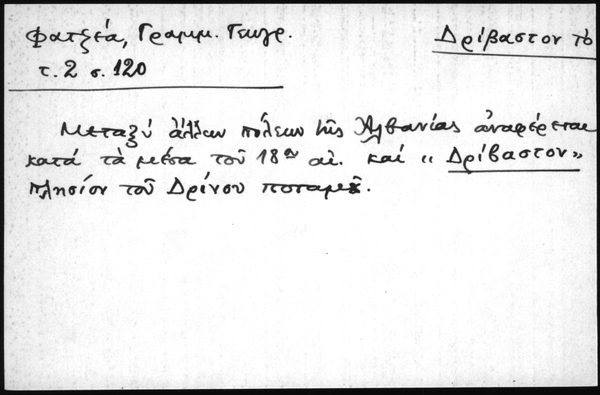 Φατζέα, Γραμμ. Γεωγρ.
Δρίβαστον τὸ
τ. 2 σ. 120
Μεταξύ ἄλλων πόλεων τῆς Ἀλβανίας ἀναφέρεται
κατά τὰ μέσα τοῦ 18ου αἰ. καί "Δρίβαστον"
πλησίον τοῦ Δρίνου ποταμοῦ.